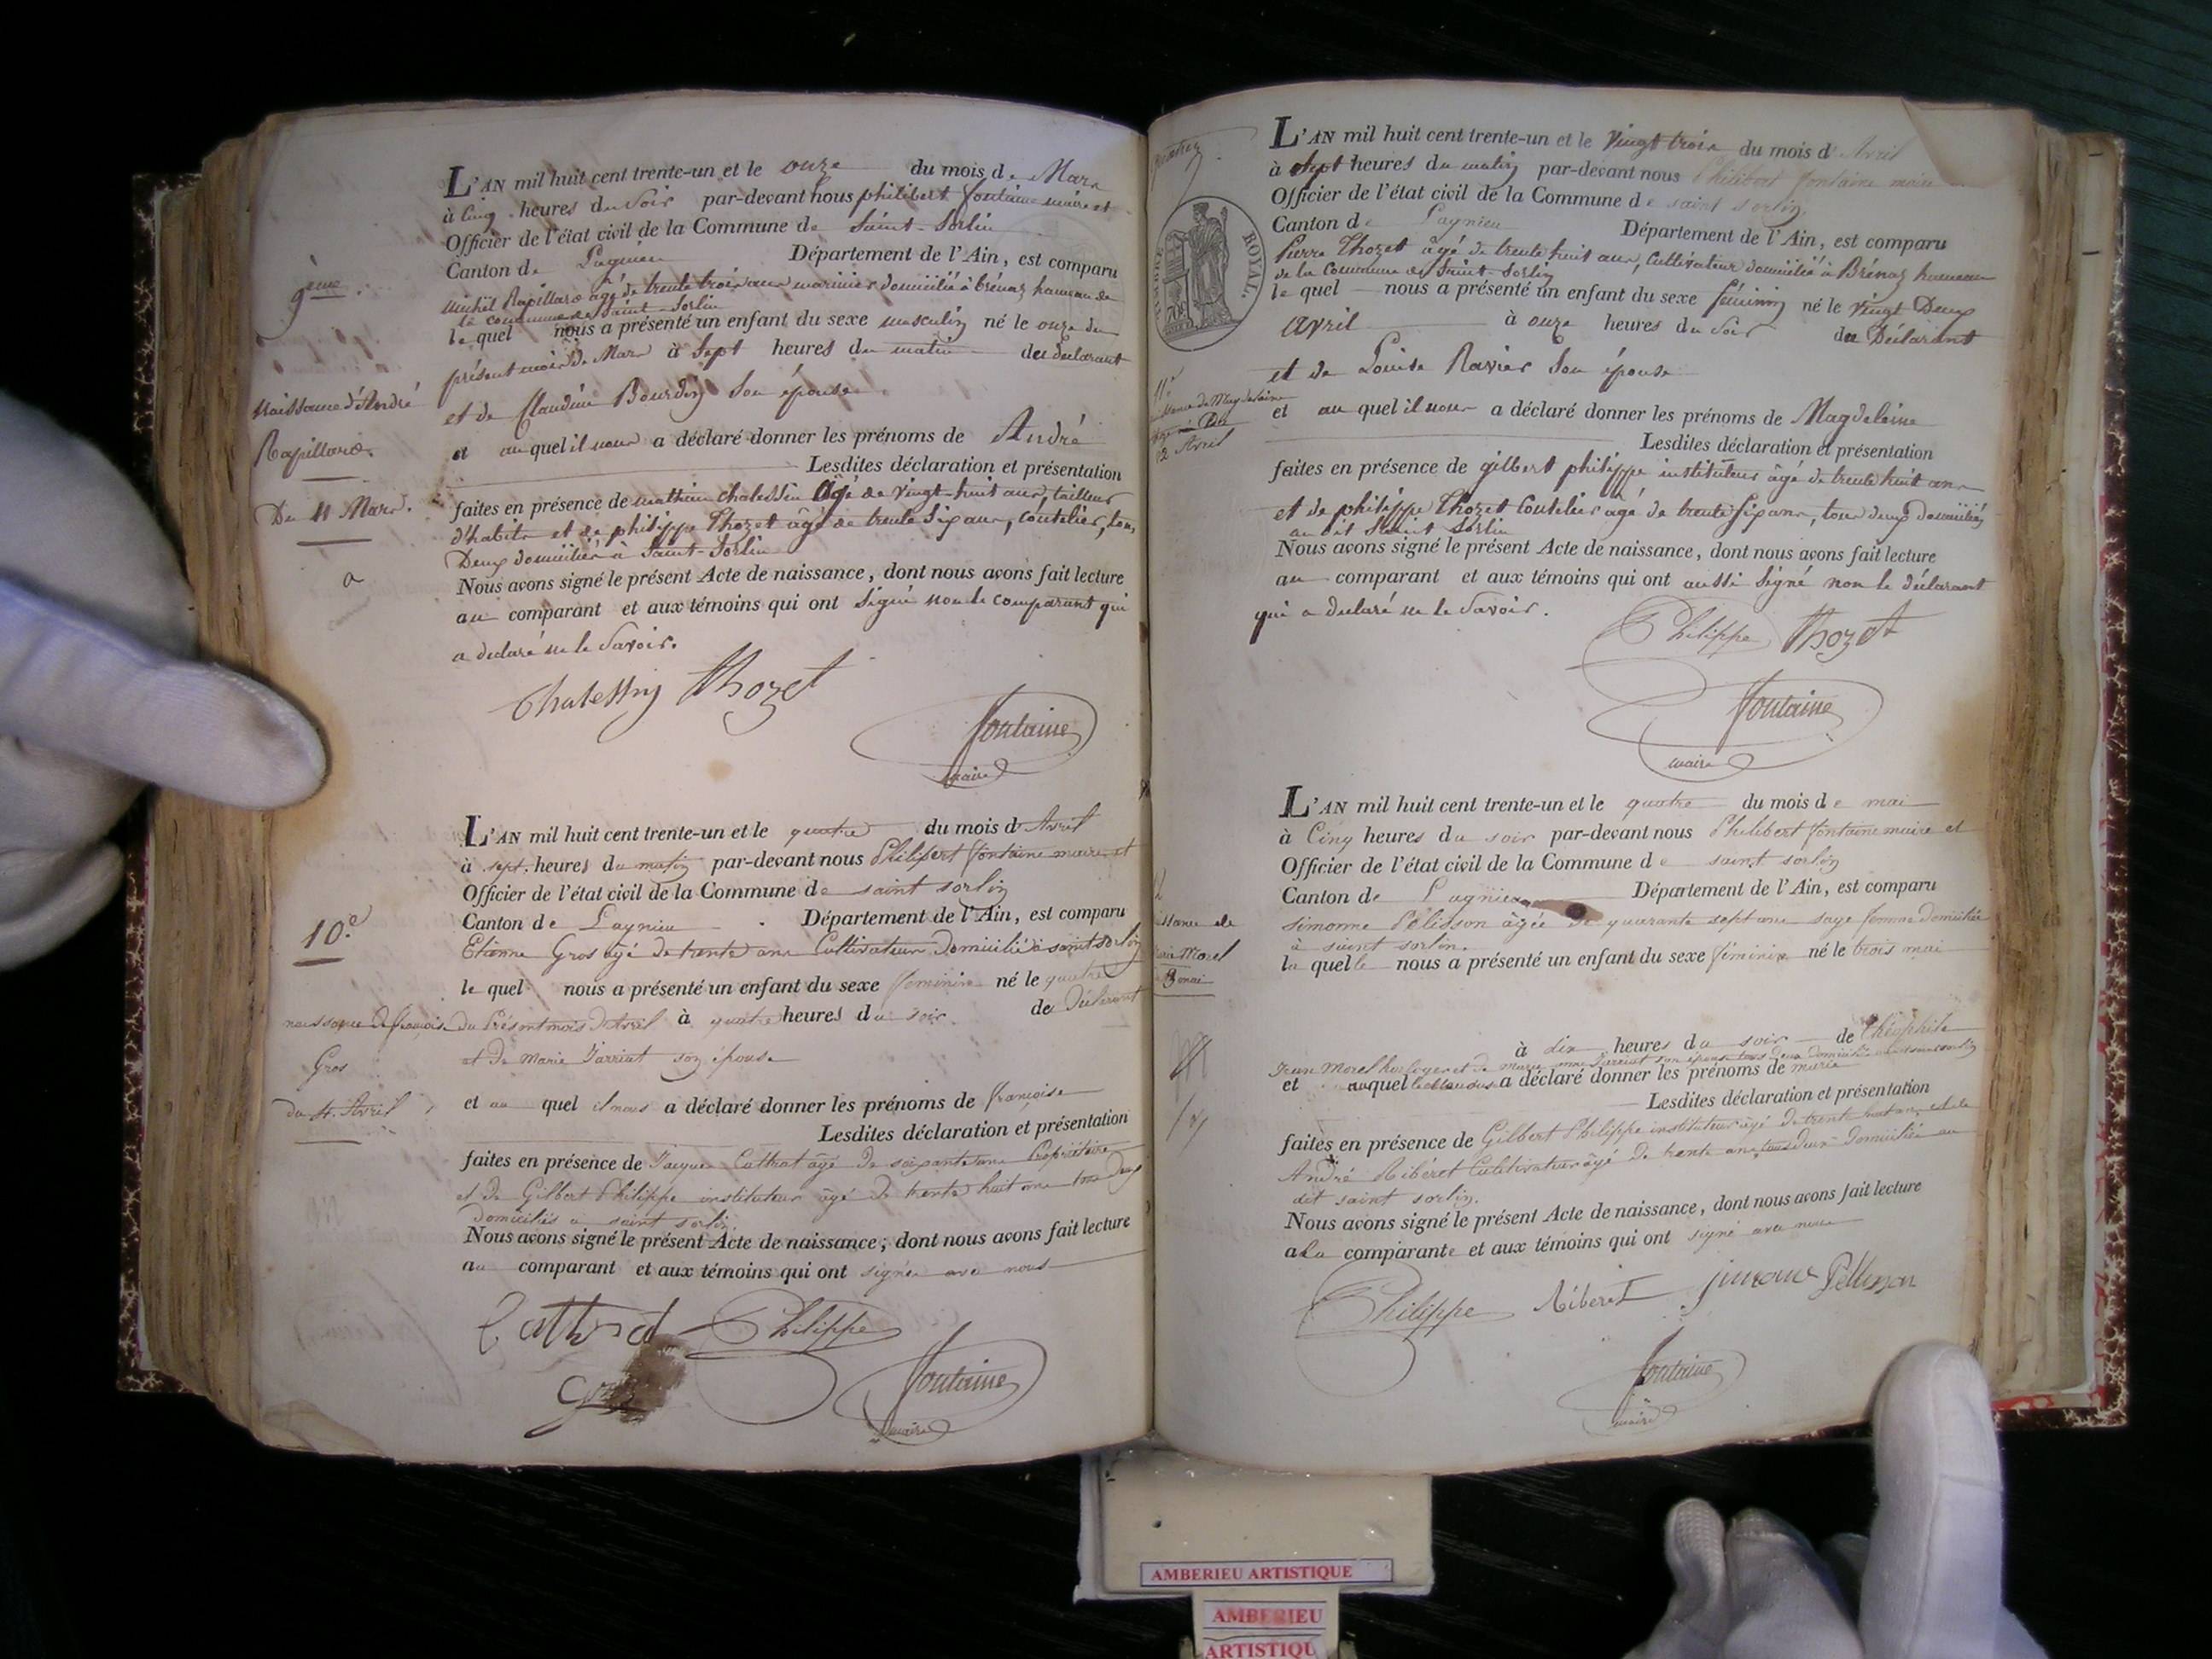 9ème.
Naissance d'André
Rapillard.
Du 11 Mars.
a
L'AN mil huit cent trente-un et le onze du mois de Mars
à cinq heures du soir par-devant nous philibert fontaine maire et
Officier de l'état civil de la Commune de Saint-Sorlin
Canton de Lagnieu Département de l'Ain, est comparu
Michel Rapillard âgé de trente trois ans marinier domicilié à brénaz hameau de
la commune de Saint-Sorlin
le quel nous a présenté un enfant du sexe masculin né le onze du
présent mois de Mars à Sept heures du matin du déclarant
et de Claudine Bourdin son épouse
et au quel il nous a déclaré donner les prénoms de André
Lesdites déclaration et présentation
faites en présence de mathieu chalessin âgé de vingt-huit ans, tailleur
d'habits et de philippe Thozet âgé de trente six ans, coutelier, tous
Deux domiciliés à Saint-Sorlin
Nous avons signé le présent Acte de naissance, dont nous avons fait lecture
au comparant et aux témoins qui ont signé non le comparant qui
a déclaré ne le savoir.
Chalessin Thozet
fontaine
maire
10.e
naissance de françoise
Gros
du 4. Avril
L'AN mil huit cent trente-un et le quatre du mois d'Avril
à sept heures du matin par-devant nous Philibert fontaine maire et
Officier de l'état civil de la Commune de saint sorlin
Canton de Lagnieu Département de l'Ain, est comparu
Etienne Gros âgé de trente ans Cultivateur domicilié à saint sorlin
le quel nous a présenté un enfant du sexe féminin né le quatre
du Présent mois d'Avril à quatre heures du soir de Déclarant
et de Marie Jarriat son épouse
et au quel il nous a déclaré donner les prénoms de françoise
Lesdites déclaration et présentation
faites en présence de Jacques Cattrat âgé de soixante ans Propriétaire
et de Gilbert Philippe instituteur âgé de trente huit ans tous deux
domiciliés à saint sorlin
Nous avons signé le présent Acte de naissance; dont nous avons fait lecture
au comparant et aux témoins qui ont signé avec nous
Philippe
Gros
fontaine
maire
ROYAL.
11.e
Avril
L'AN mil huit cent trente-un et le vingt trois du mois d'Avril
à sept heures du matin par-devant nous Philibert fontaine maire
Officier de l'état civil de la Commune de saint sorlin
Canton de Lagnieu Département de l'Ain, est comparu
Pierre Thozet âgé de trente huit ans, Cultivateur domicilié à Brénaz hameau
de la Commune de Saint-Sorlin
le quel nous a présenté un enfant du sexe féminin né le vingt Deux
avril à onze heures du soir du Déclarant
et de Louise Ravier son épouse
et au quel il nous a déclaré donner les prénoms de Magdeleine
Lesdites déclaration et présentation
faites en présence de gilbert philippe instituteur âgé de trente huit ans
et de philippe Thozet Coutelier âgé de trente six ans, tous deux domiciliés
au dit Saint Sorlin
Nous avons signé le présent Acte de naissance, dont nous avons fait lecture
au comparant et aux témoins qui ont aussi signé non le déclarant
qui a déclaré ne le savoir.
Philippe Thozet
fontaine
maire
Morel
mai
L'AN mil huit cent trente-un et le quatre du mois de mai
à Cinq heures du soir par-devant nous Philibert fontaine maire et
Officier de l'état civil de la Commune de saint sorlin
Canton de Lagnieu Département de l'Ain, est comparu
Simonne Pélisson âgée de quarante sept ans sage femme domiciliée
à saint sorlin.
la quelle nous a présenté un enfant du sexe féminin né le trois mai
à dix heures du soir de Théophile
Jean Morel horloger et de marie Jarriat son épouse tous deux domiciliés
et auquel a déclaré donner les prénoms de marie
Lesdites déclaration et présentation
faites en présence de Gilbert Philippe instituteur âgé de trente huit ans et de
André Ribéret Cultivateur âgé de trente ans tous deux domiciliés au
dit saint sorlin.
Nous avons signé le présent Acte de naissance, dont nous avons fait lecture
a la comparante et aux témoins qui ont signé avec nous
Philippe Riberet
fontaine
maire
AMBERIEU ARTISTIQUE
AMBERIEU
ARTISTIQU